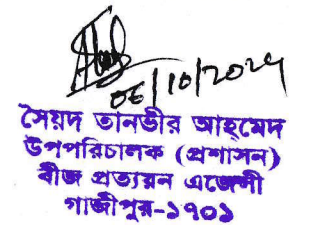 06/10/2024
সৈয়দ তানভীর আহমেদ
উপপরিচালক (প্রশাসন)
বীজ প্রত্যয়ন এজেন্সী
গাজীপুর-১৭০১